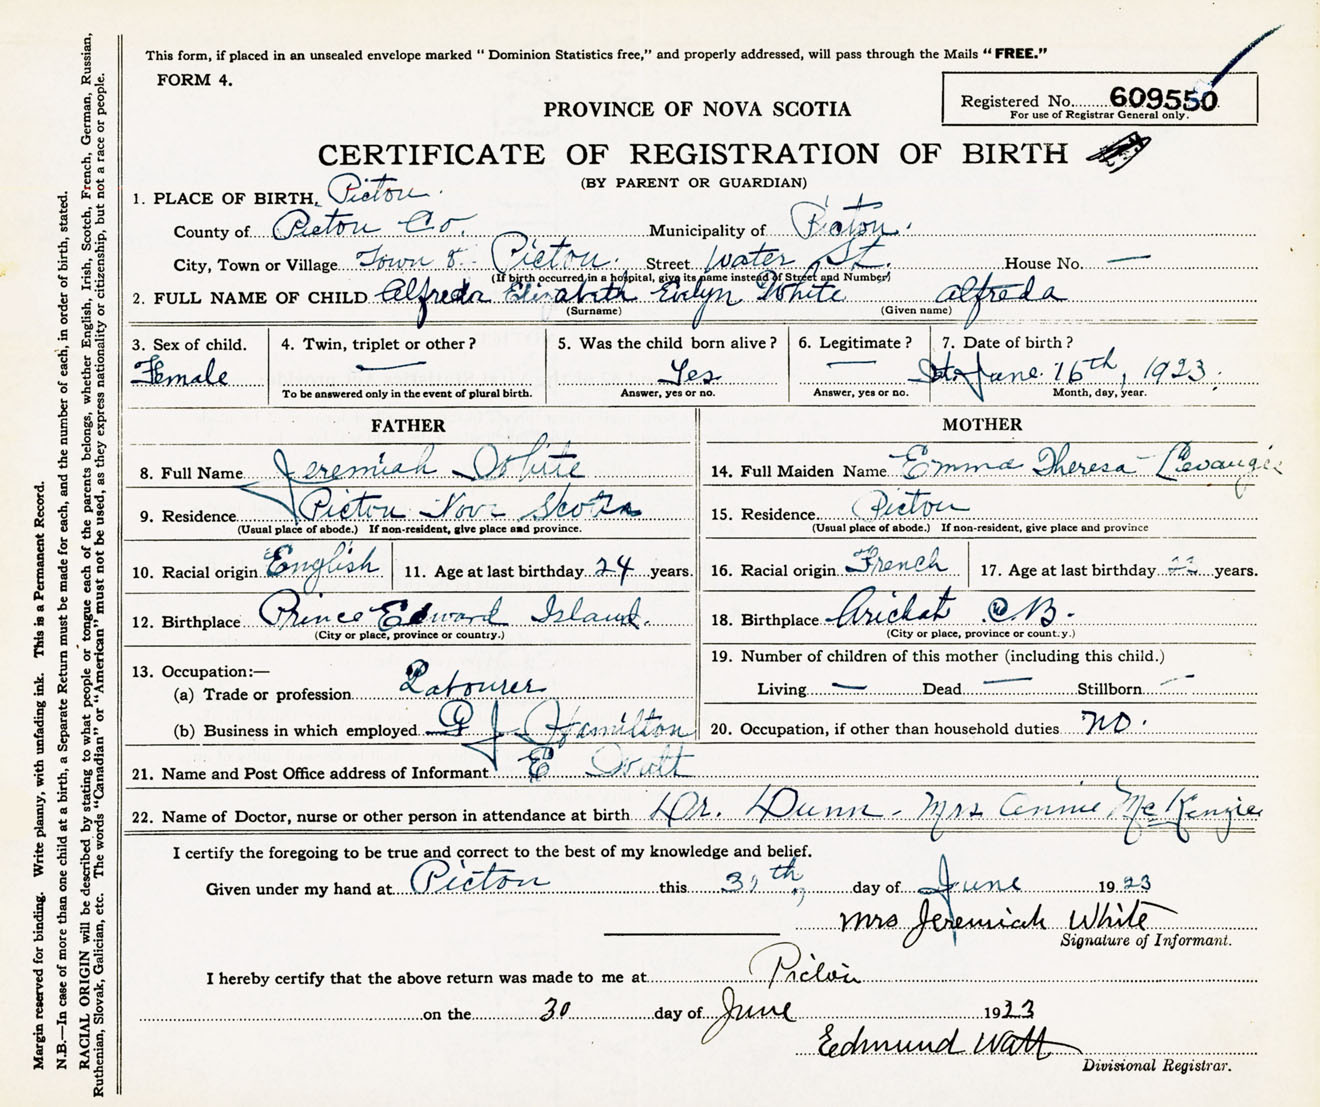 This form, if placed in an unsealed envelope marked "Dominion Statistics free," and properly addressed, will pass through the Mails "FREE."
FORM 4.
Registered No. 609550
For use of Registrar General only.
PROVINCE OF NOVA SCOTIA
CERTIFICATE OF REGISTRATION OF BIRTH
(BY PARENT OR GUARDIAN)
1. PLACE OF BIRTH. Pictou.
County of Pictou Co. Municipality of Pictou.
City, Town or Village Town of Pictou. Street Water St. House No. —
(If birth occurred in a hospital, give its name instead of Street and Number)
2. FULL NAME OF CHILD Alfreda Elizabeth Evelyn White Alfreda
(Surname) (Given name)
3. Sex of child. 4. Twin, triplet or other? 5. Was the child born alive? 6. Legitimate? 7. Date of birth?
Female — Yes — June 16th, 1923.
To be answered only in the event of plural birth. Answer, yes or no. Answer, yes or no. Month, day, year.
FATHER MOTHER
8. Full Name Jeremiah White 14. Full Maiden Name Emma Theresa
9. Residence Pictou Nova Scotia 15. Residence Pictou
(Usual place of abode.) If non-resident, give place and province. (Usual place of abode.) If non-resident, give place and province
10. Racial origin English 11. Age at last birthday 24 years. 16. Racial origin French 17. Age at last birthday years.
12. Birthplace Prince Edward Island. 18. Birthplace Arichat C.B.
(City or place, province or country.) (City or place, province or country.)
13. Occupation:— 19. Number of children of this mother (including this child.)
(a) Trade or profession Labourer Living — Dead — Stillborn —
(b) Business in which employed J Hamilton 20. Occupation, if other than household duties NO.
21. Name and Post Office address of Informant E
22. Name of Doctor, nurse or other person in attendance at birth Dr. Dunn - Mrs Annie McKenzie
I certify the foregoing to be true and correct to the best of my knowledge and belief.
Given under my hand at Pictou this day of June 1923
Mrs Jeremiah White
Signature of Informant.
I hereby certify that the above return was made to me at Pictou
on the 30 day of June 1923
Edmund Watt
Divisional Registrar.
Margin reserved for binding. Write plainly, with unfading ink. This is a Permanent Record.
N.B.—In case of more than one child at a birth, a Separate Return must be made for each, and the number of each, in order of birth, stated.
RACIAL ORIGIN will be described by stating to what people or tongue each of the parents belongs, whether English, Irish, Scotch, French, German, Russian,
Ruthenian, Slovak, Galician, etc. The words "Canadian" or "American" must not be used, as they express nationality or citizenship, but not a race or people.